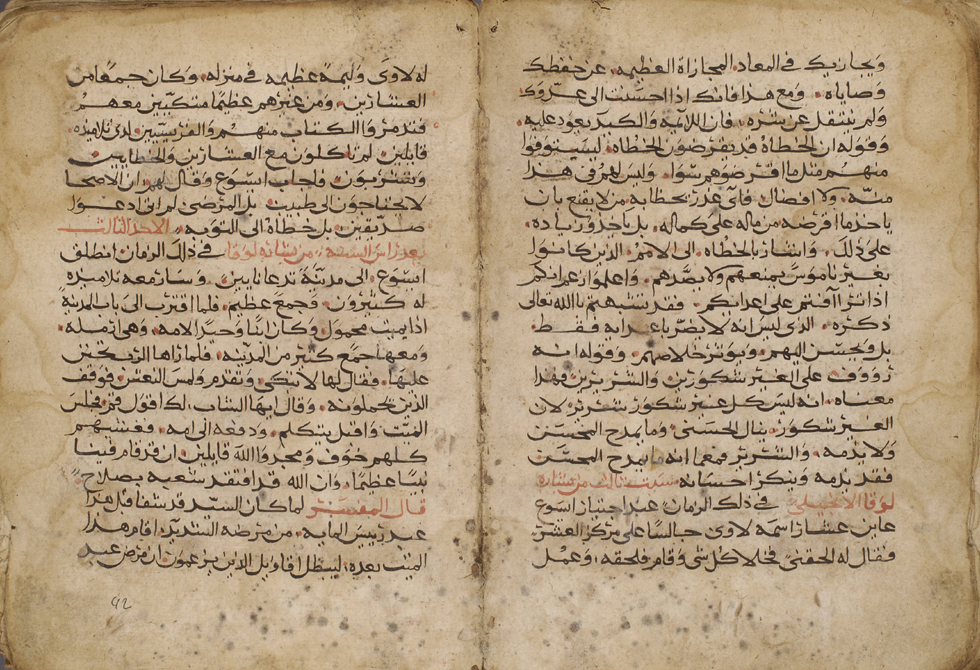 ويجازيك في المعاد المجازاة العظيمه عن حفظك
وصاياه ومع هذا فانك اذا احسنت الى عدوك
ولم تنتقل عن بشره فان اللايمه والكبد يعود عليه
وقوله ان الخطاة قد يقرضون الخطاه ليستوفوا
منهم مثل ما اقرضوهم سوا وليس لهم في هذا
منه ولا افضال فاي عذر بخطابه من لا يقنع بان
ياخذ ما اقرضه من ماله على كماله بل ياخذ زياده
على ذلك واشار بالخطاه الى الامم الذين كانوا
بغير ناموس يمنعهم ولا يصدهم واعلموا انكم
اذا اترافتم على اعدايكم فقد تشبهتم بالله تعالى
ذكره الذي ليس انه لا يضر باعدايه فقط
بل ويحسن اليهم ويوثر خلاصهم وقوله انه
رووف على الغير شكورين والشريرين فهذا
معناه انه ليس كل غير شكور شرير لان
الغير شكور ينال الحسنى وما يمدح المحسن
ولا يذمه والشرير فمع انه ما يمدح المحسن
فقد يذمه وينكر احسانه سبت ثالث من بشارة
لوقا الانجيلي في ذلك الزمان عند اجتياز اسوع
عاين عشارا اسمه لاوى جالسا على مركز العشر
فقال له الحقني فخلا كل شي وقام فلحقه وعمل
له لاوى وليمة عظيمه في منزله وكان جمعا من
العشارين ومن غيرهم عظيما متكيين معهم
فتدمروا الكتاب منهم والفريسيين لدى تلاميذه
قايلين لم تاكلون مع العشارين والخطايين
وتشربون فاجاب اسوع وقال لهم ان الاصحا
لا يحتاجون الى طبيب بل المرضى لم اتى ادعوا
صديقين بل خطاة الى التوبه الاحد الثالث
بعد راس السنه من بشارة لوقا في ذلك الزمان انطلق
اسوع الى مدينة تدعا نايين وسار معه تلاميذه
له كثيرون وجمع عظيم فلما اقترب الى باب المدينة
اذا ميت محمول وكان ابنا وحيدا لامه وهي ارمله
ومعها جمع كثير من المدينه فلما راها الرب تحنن
عليها فقال لها لا تبكي وتقدم ولمس النعش فوقف
الذين يحملونه وقال ايها الشاب لك اقول قم فجلس
الميت واقبل يتكلم ودفعه الى امه فغشيهم
كلهم خوف ومجدوا الله قايلين ان قد قام فينا
نبيا عظيما وان الله قد افتقد شعبه بصلاح
قال المفسر لما كان السيد قد شفا قبل هذا
عبد رييس المايه من مرضه الشديد اقام هذا
الميت بعده ليبطل اقاويل الذين يزعمون ان مرض عبد
92